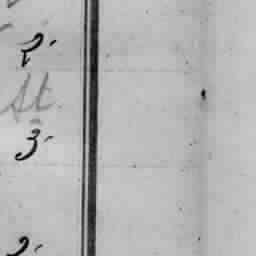 2.
St.
3.
2.